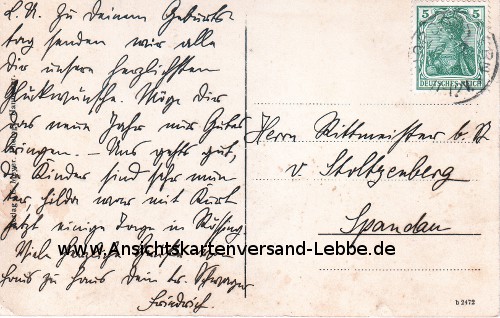 L. A. Zu Deinem Geburts-
tag senden wir alle
Dir unsere herzlichsten
Glückwünsche. Möge Dir
das neue Jahr nur Gutes
bringen. – Uns gehts gut,
d. Kinder sind sehr mun-
ter, Hilda war mit Kurt
jetzt einige Tage in Kösing.
Viele
Haus zu Haus Dein tr. Schwager
Friedrich.
5 5
DEUTSCHES REICH
Herrn Rittmeister
v Stoltzenberg
Spandau
www.Ansichtskartenversand-Lebbe.de
b 2472